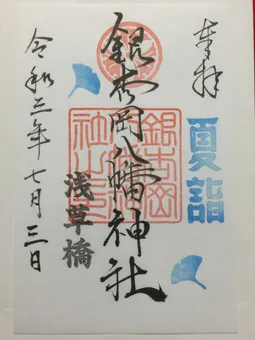 奉拝
夏詣
銀杏岡八幡神社
浅草橋
令和三年七月三日